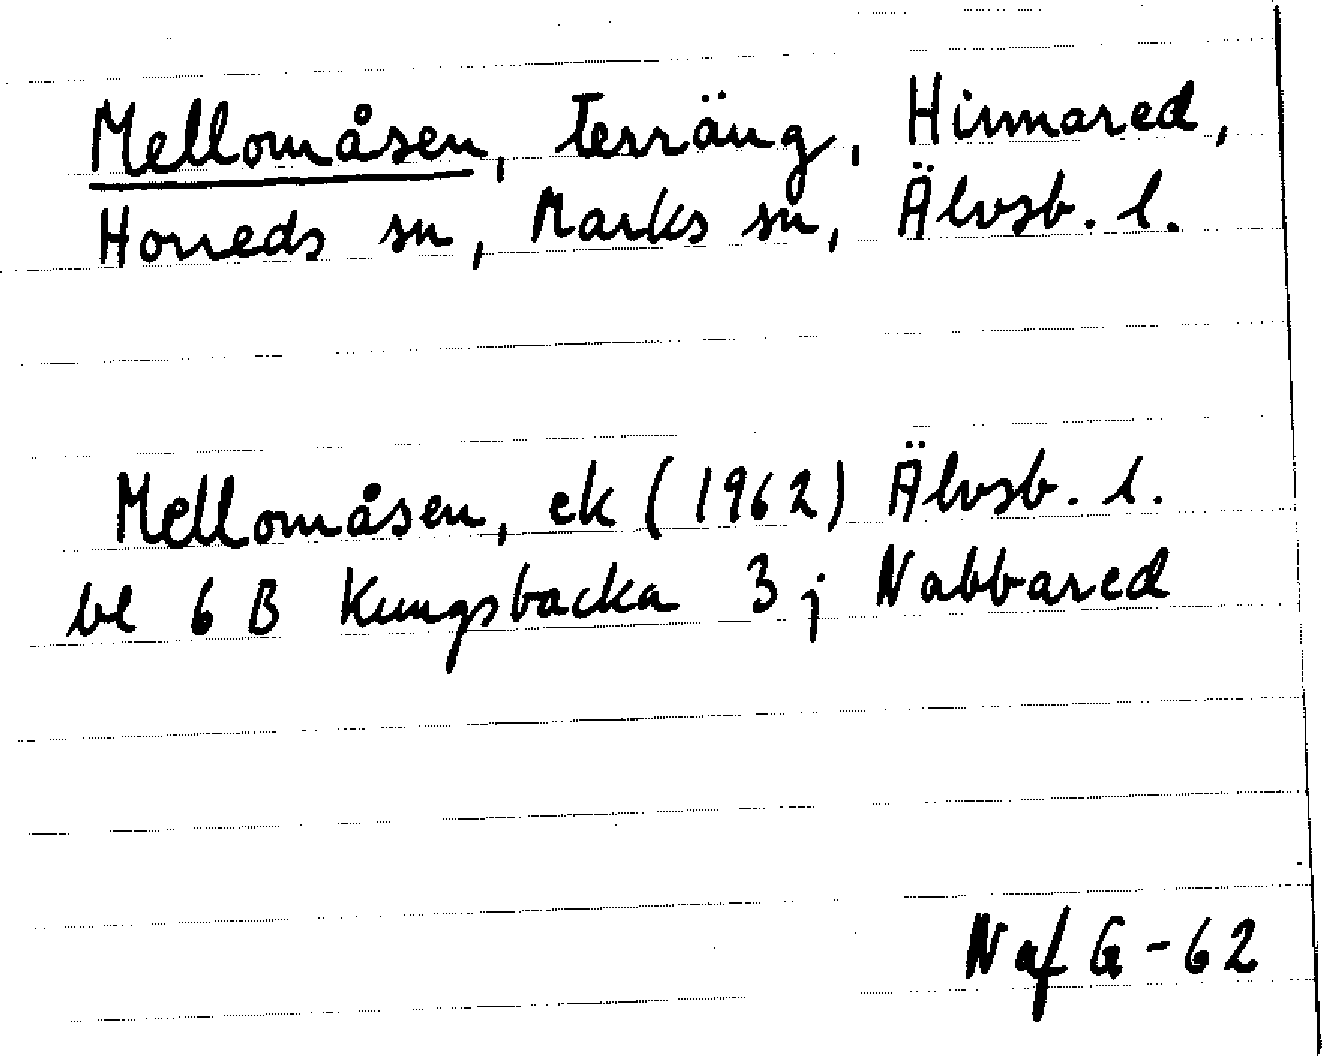 Mellomåsen, terräng, Hinnared,
Horreds sn, Marks sn, Älvsb. l.
Mellomåsen, ek (1962) Älvsb. l.
bl 6 B Kungsbacka 3 j Nabbared
N af G - 62